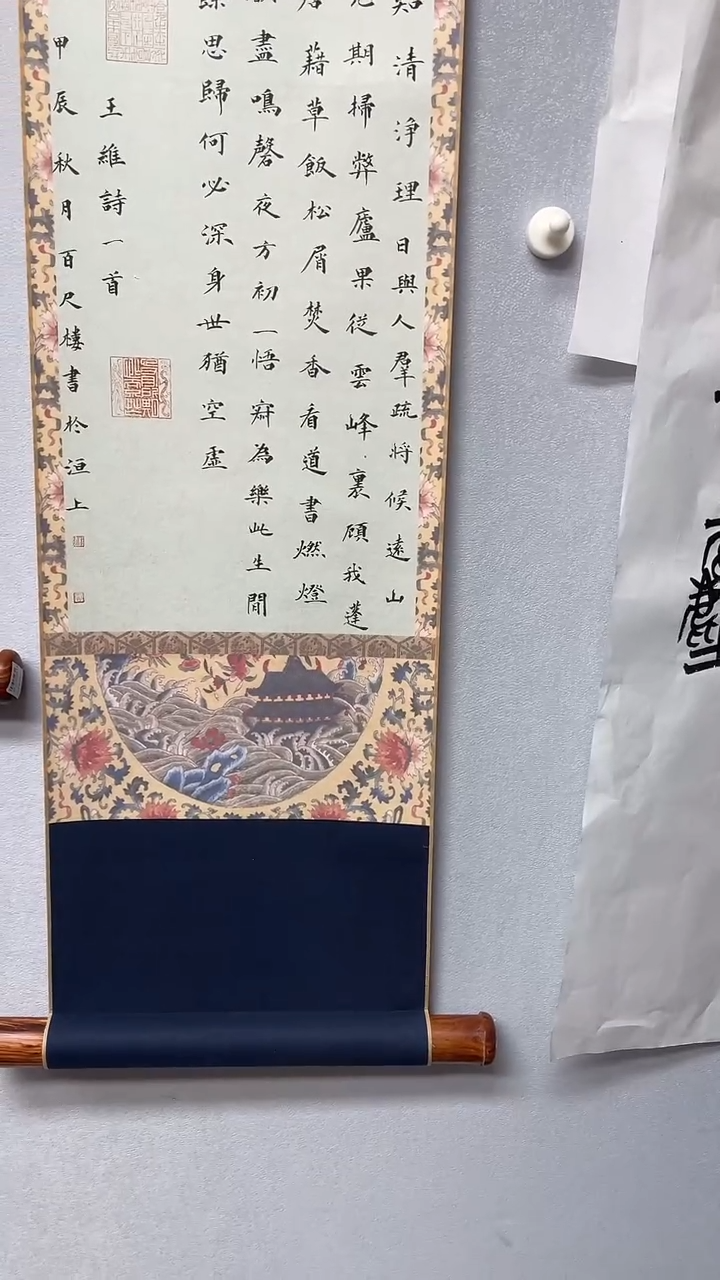 知清淨理日與人羣疏將候遠山
期掃弊廬果從雲峰裏顧我蓬
藉草飯松屑焚香看道書燃燈
盡鳴磬夜方初一悟寂為樂此生閒
思歸何必深身世猶空虛
王維詩一首
甲辰秋月百尺樓書於洹上